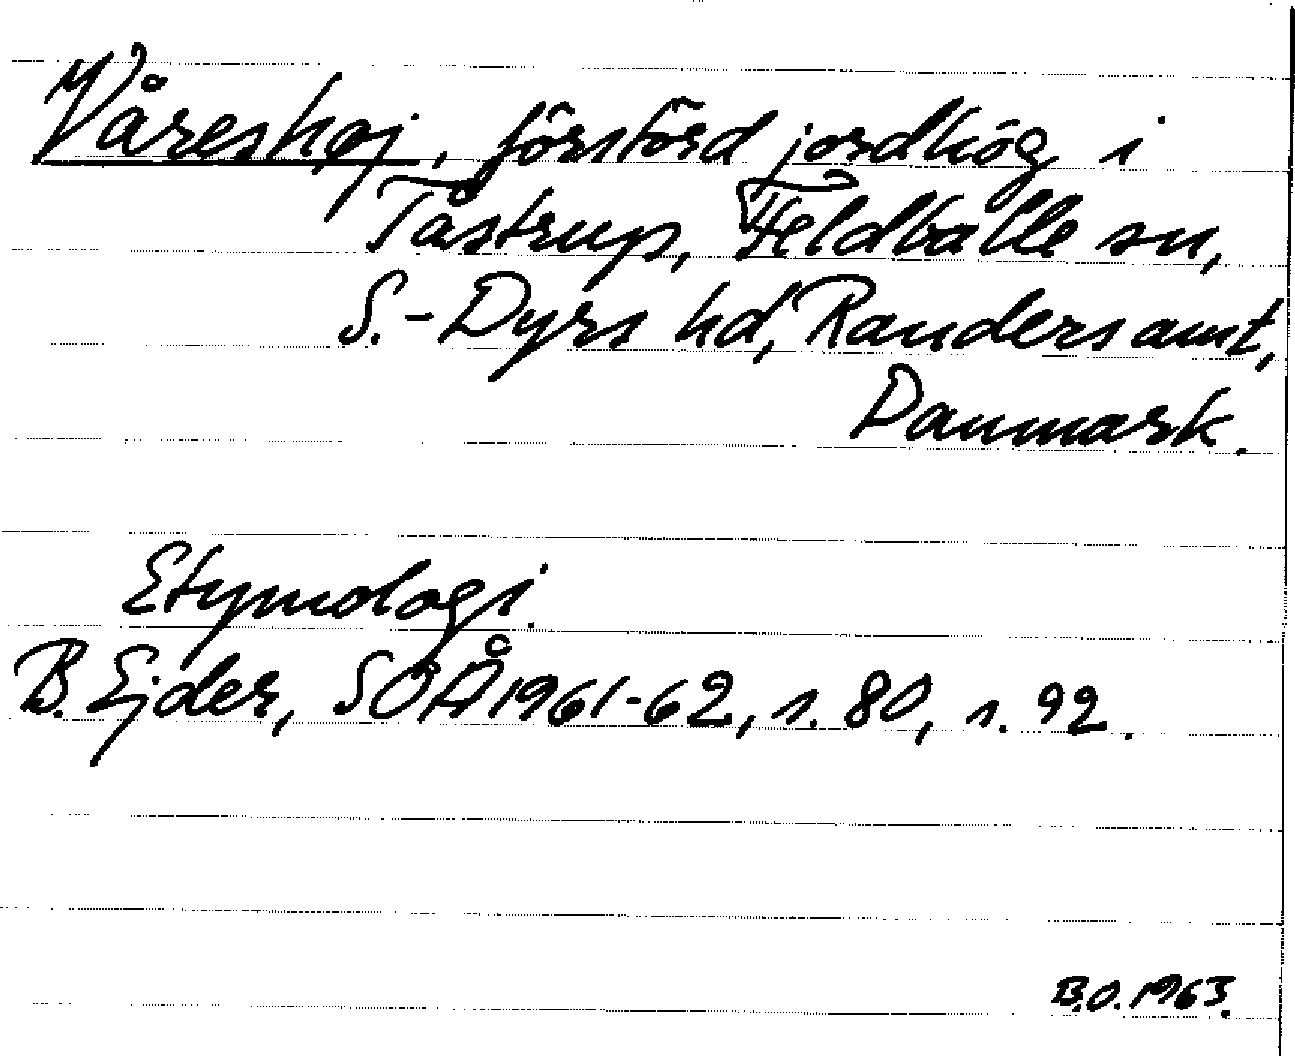 Våreshøj, förstörd jordhög i
Tåstrup, Feldballe sn,
S.-Dyrs hd, Randers amt,
Danmark.
Etymologi.
B. Ejder, SOÅ 1961-62, s. 80, s. 92.
B.O. 1963.